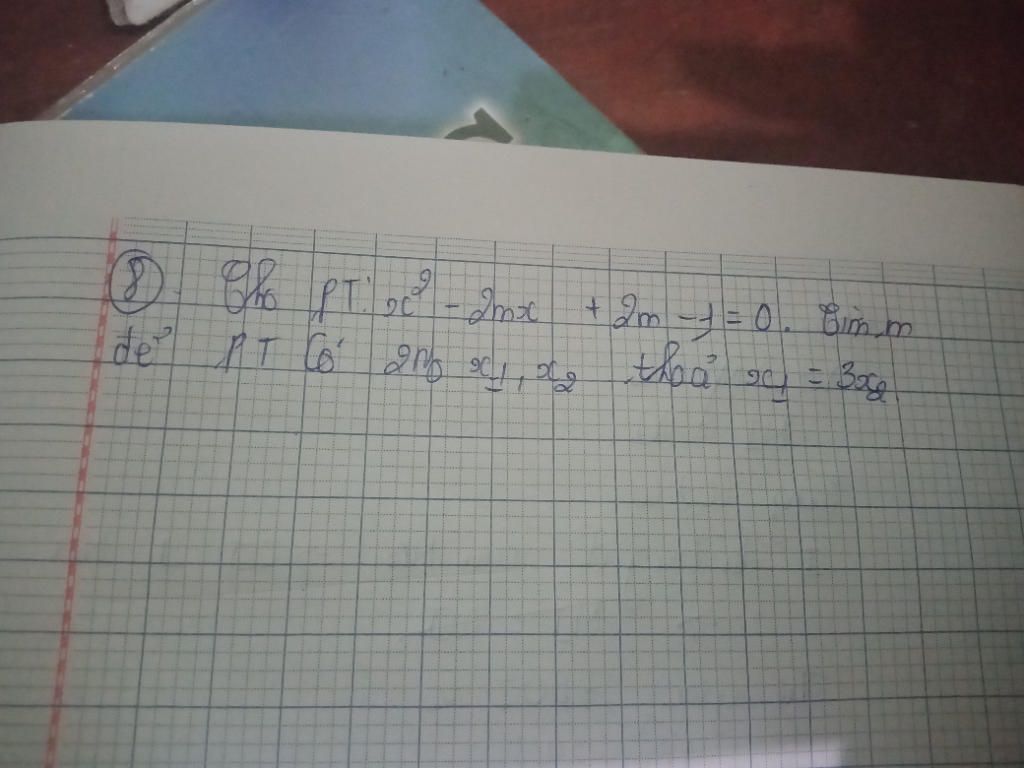 ⑧. Cho PT: x² - 2mx + 2m - 1 = 0. Tìm m
để PT có 2no x₁, x₂ thoả x₁ = 3x₂